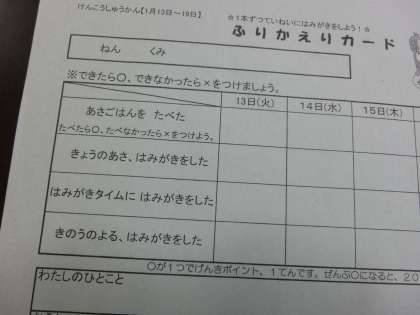 けんこうしゅうかん【1月13日～19日】
☆1本ずつていねいにはみがきをしよう！☆
ふりかえりカード
ねん　くみ
※できたら○、できなかったら×をつけましょう。
13日(火)　14日(水)　15日(木)
あさごはんを　たべた
たべたら○、たべなかったら×をつけよう。
きょうのあさ、はみがきをした
はみがきタイムに はみがきをした
きのうのよる、はみがきをした
○が1つでげんきポイント、1てんです。ぜんぶ○になると、20
わたしのひとこと